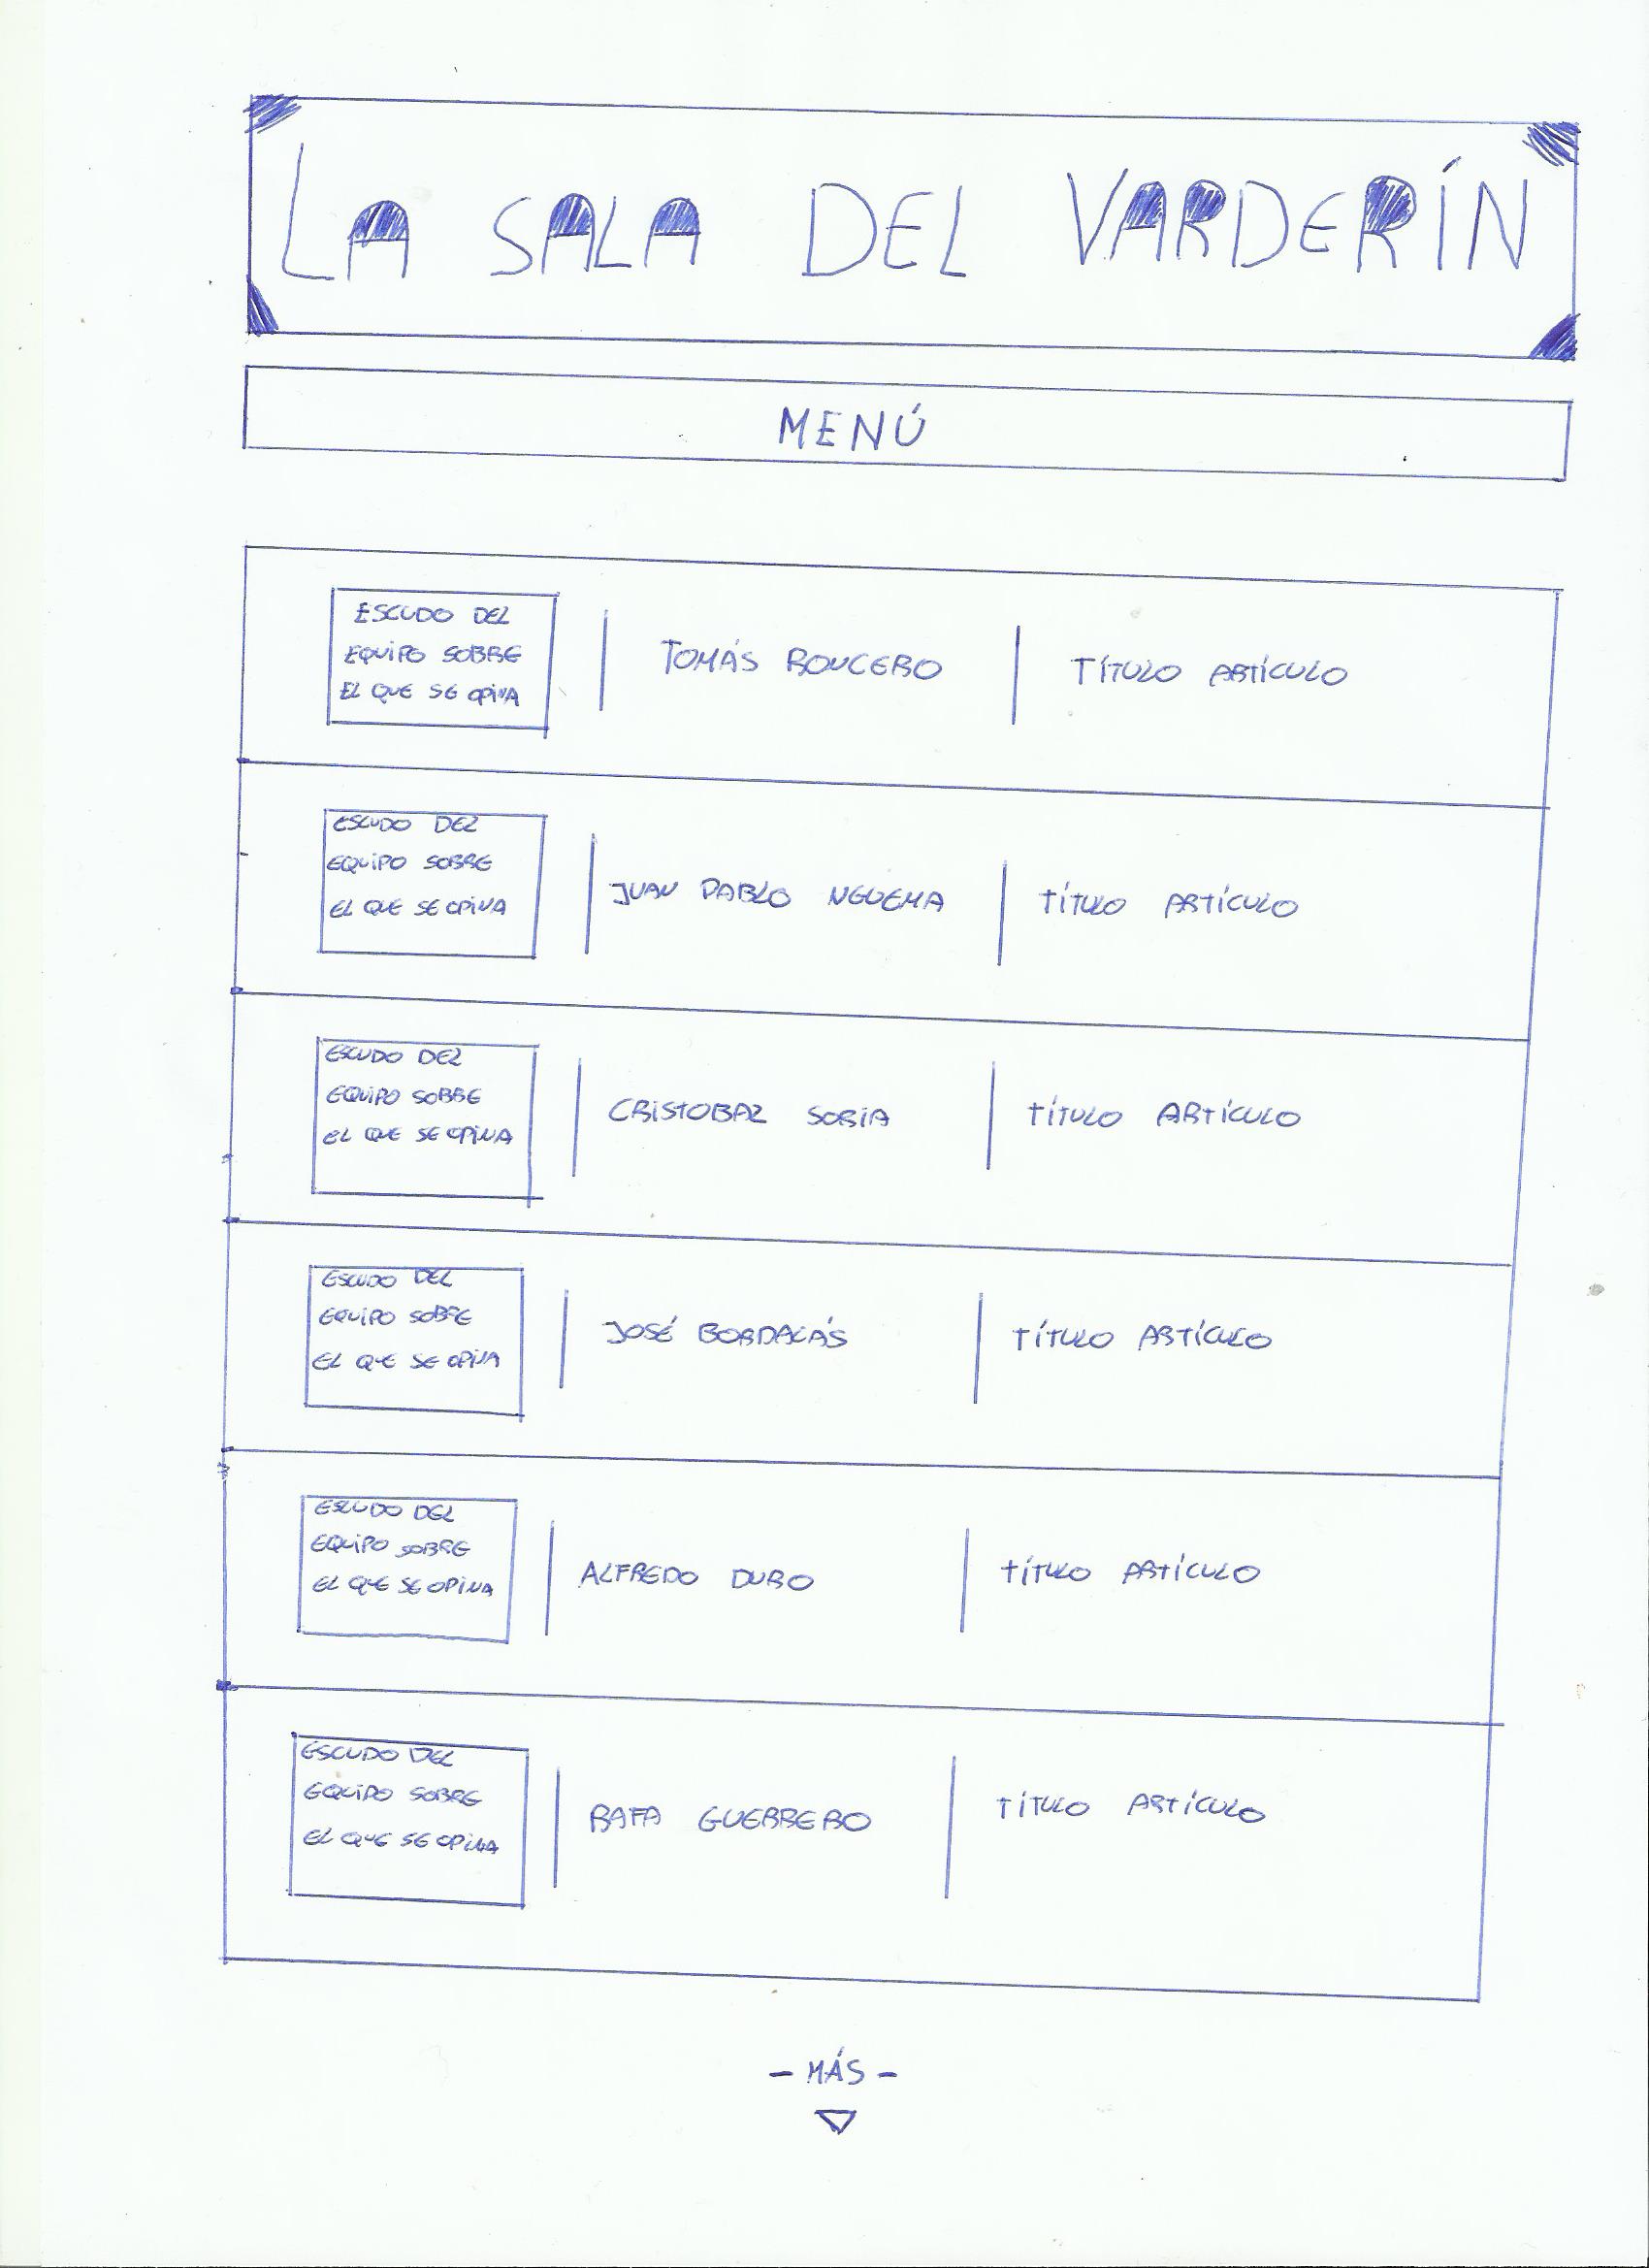 LA SALA DEL VARDERÍN
MENÚ
ESCUDO DEL
EQUIPO SOBRE
EL QUE SE OPINA
TOMÁS RONCERO
TÍTULO ARTÍCULO
ESCUDO DEL
EQUIPO SOBRE
EL QUE SE OPINA
JUAN PABLO NGUEMA
TÍTULO ARTÍCULO
ESCUDO DEL
EQUIPO SOBRE
EL QUE SE OPINA
CRISTOBAL SORIA
TÍTULO ARTÍCULO
ESCUDO DEL
EQUIPO SOBRE
EL QUE SE OPINA
JOSÉ BORDALÁS
TÍTULO ARTÍCULO
ESCUDO DEL
EQUIPO SOBRE
EL QUE SE OPINA
ALFREDO DURO
TÍTULO ARTÍCULO
ESCUDO DEL
EQUIPO SOBRE
EL QUE SE OPINA
RAFA GUERRERO
TÍTULO ARTÍCULO
- MÁS -